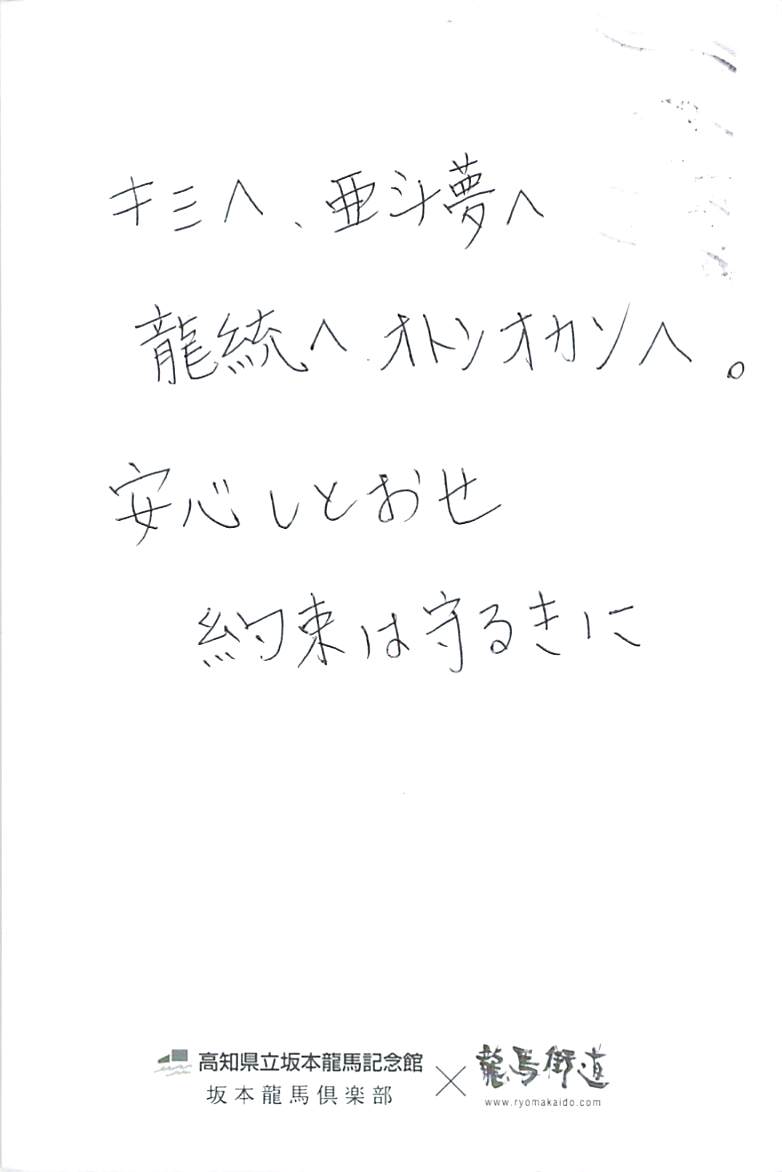 キミへ、亜斗夢へ
龍統へ オトンオカンへ。
安心しとおせ
約束は守るきに
高知県立坂本龍馬記念館
坂本龍馬倶楽部
×
龍馬街道
www.ryomakaido.com